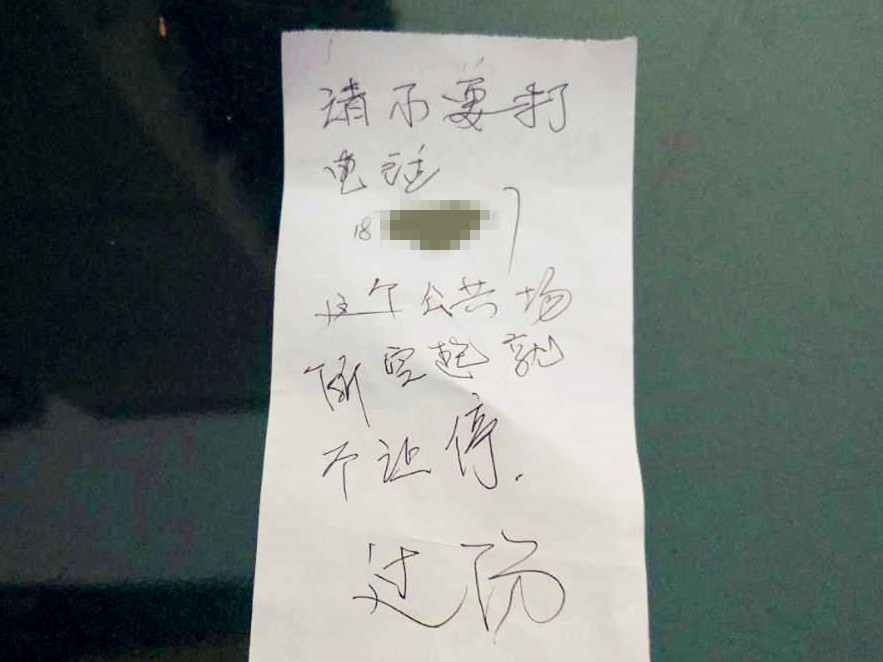 请不要打
电话
18
这个公共场
所空起就
不让停.
过份